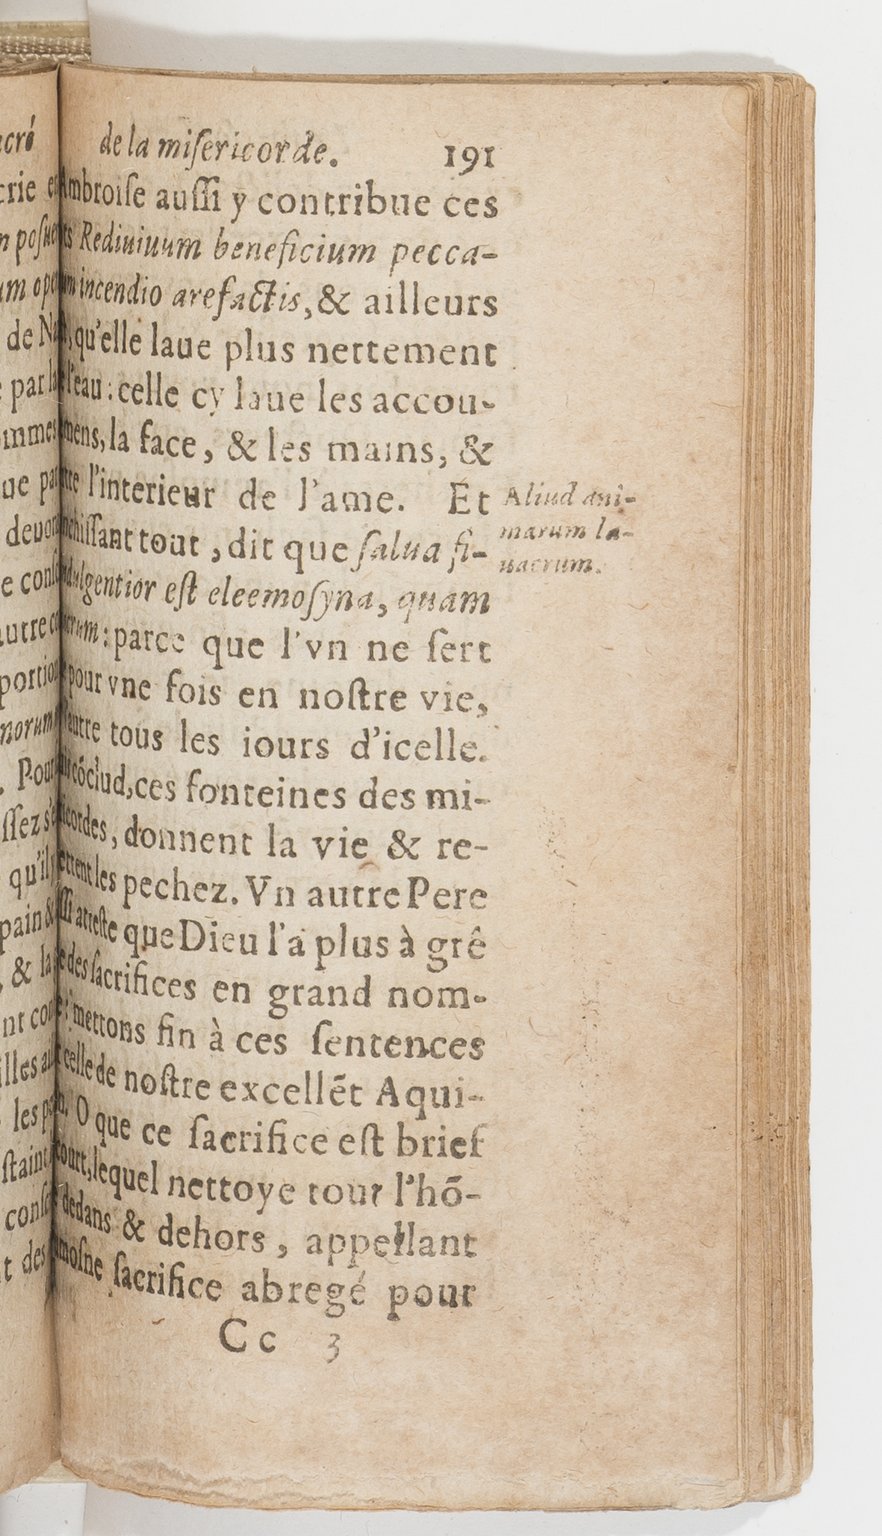 de la miſericorde. 191
mbroiſe auſſi y contribue ces
Rediuiuum beneficium pecca-
incendio arefactis, & ailleurs
qu'elle laue plus nettement
l'eau: celle cy laue les accou-
mens, la face, & les mains, &
l'interieur de l'ame. Et
chiſſant tout, dit que ſalua fi-
dulgentior eſt eleemoſyna, quam
parce que l'vn ne ſert
pour vne fois en noſtre vie,
autre tous les iours d'icelle.
cõclud, ces fonteines des mi-
cordes, donnent la vie & re-
les pechez. Vn autre Pere
atteſte que Dieu l'a plus à gré
des ſacrifices en grand nom-
mettons fin à ces ſentences
celle de noſtre excellẽt Aqui-
O que ce ſacrifice eſt brief
lequel nettoye tout l'hõ-
dedans & dehors, appellant
moſne ſacrifice abregé pour
Cc 3
Aliud ani-
marum la-
uacrum.